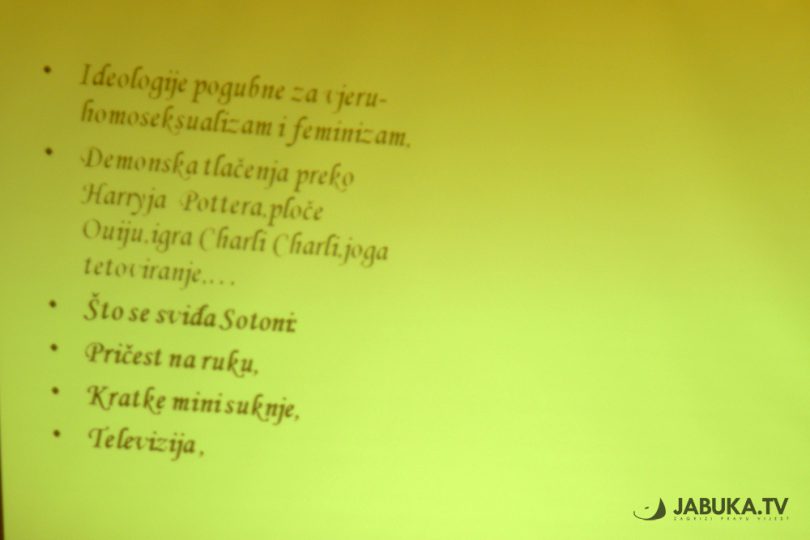 • Ideologije pogubne za vjeru-
homoseksualizam i feminizam.
• Demonska tlačenja preko
Harryja Pottera,ploče
Ouiju,igra Charli Charli,joga
tetoviranje,...
• Što se sviđa Sotoni:
• Pričest na ruku,
• Kratke minisuknje,
• Televizija,
JABUKA.TV
ZAGRIZI PRAVU VIJEST